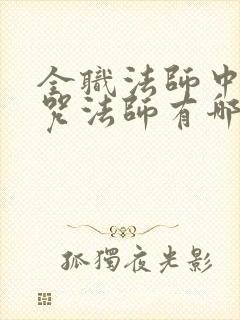 全職法師中
咒法師有哪
孤獨夜光影